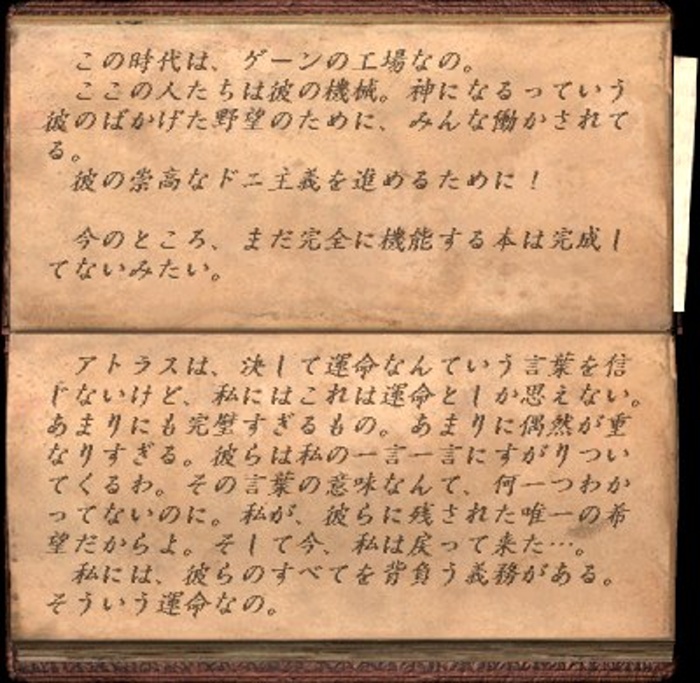 この時代は、ゲーンの工場なの。
ここの人たちは彼の機械。神になるっていう
彼のばかげた野望のために、みんな働かされて
る。
彼の崇高なドニ主義を進めるために！
今のところ、まだ完全に機能する本は完成し
てないみたい。
アトラスは、決して運命なんていう言葉を信
じないけど、私にはこれは運命としか思えない。
あまりにも完璧すぎるもの。あまりに偶然が重
なりすぎる。彼らは私の一言一言にすがりつい
てくるわ。その言葉の意味なんて、何一つわか
ってないのに。私が、彼らに残された唯一の希
望だからよ。そして今、私は戻って来た…。
私には、彼らのすべてを背負う義務がある。
そういう運命なの。